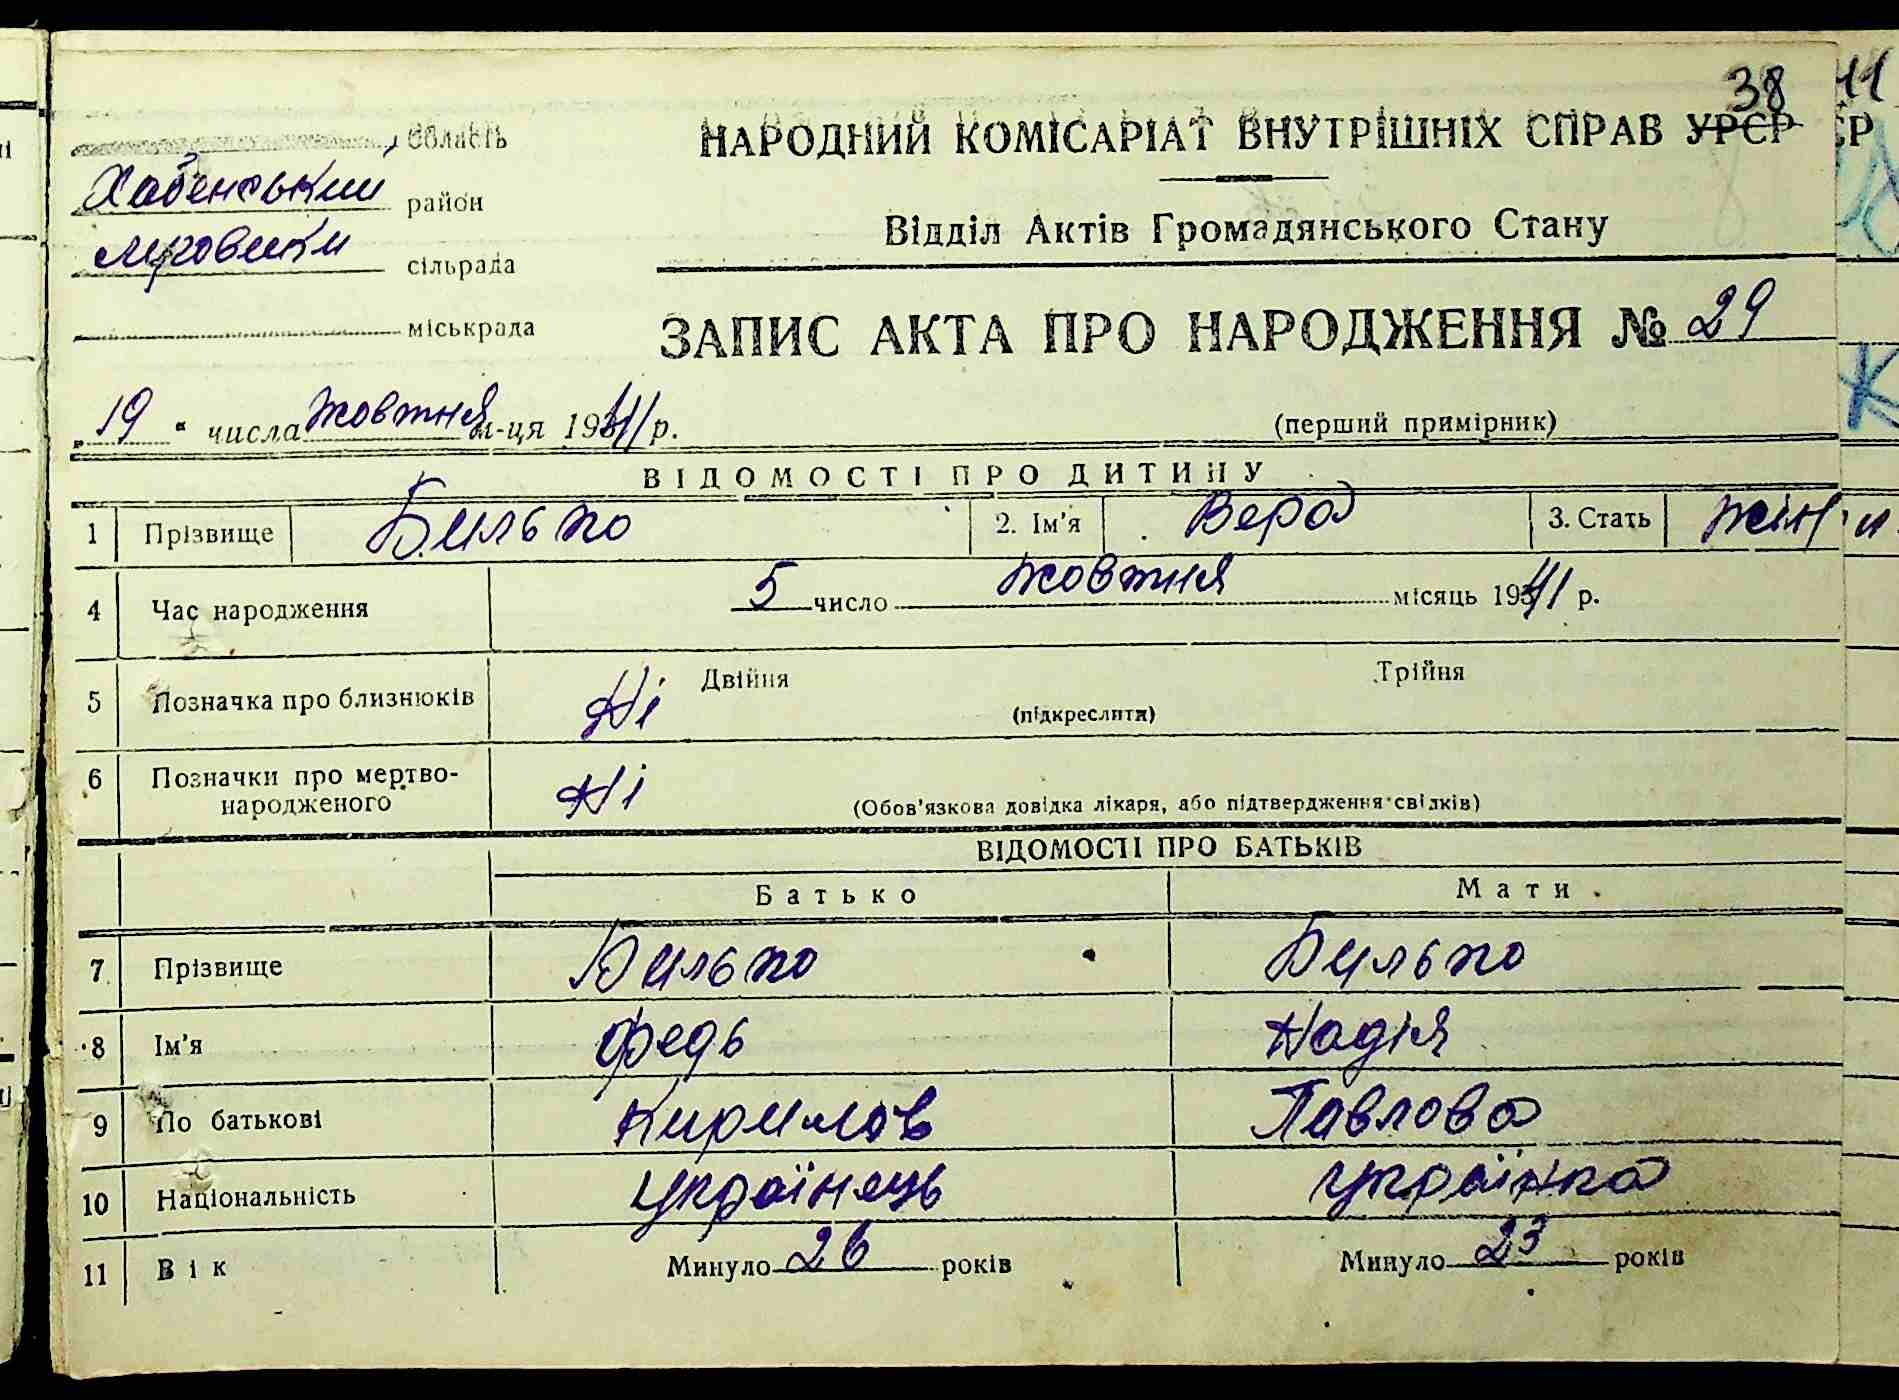 38
НАРОДНИЙ КОМІСАРІАТ ВНУТРІШНІХ СПРАВ УРСР
Відділ Актів Громадянського Стану
область
Хабенський район
сільрада
міськрада
ЗАПИС АКТА ПРО НАРОДЖЕННЯ № 29
„19“ числа жовтня м-ця 1941 р.
(перший примірник)
ВІДОМОСТІ ПРО ДИТИНУ
1 Прізвище Билько 2. Ім'я Вера 3. Стать жін
4 Час народження 5 число жовтня місяць 1941 р.
5 Позначка про близнюків Ні Двійня Трійня
(підкреслити)
6 Позначки про мертво-
народженого Ні (Обов'язкова довідка лікаря, або підтвердження свідків)
ВІДОМОСТІ ПРО БАТЬКІВ
Батько Мати
7 Прізвище Билько Билько
8 Ім'я Федь Надія
9 По батькові Кирилов Павлова
10 Національність українець українка
11 Вік Минуло 26 років Минуло 23 років